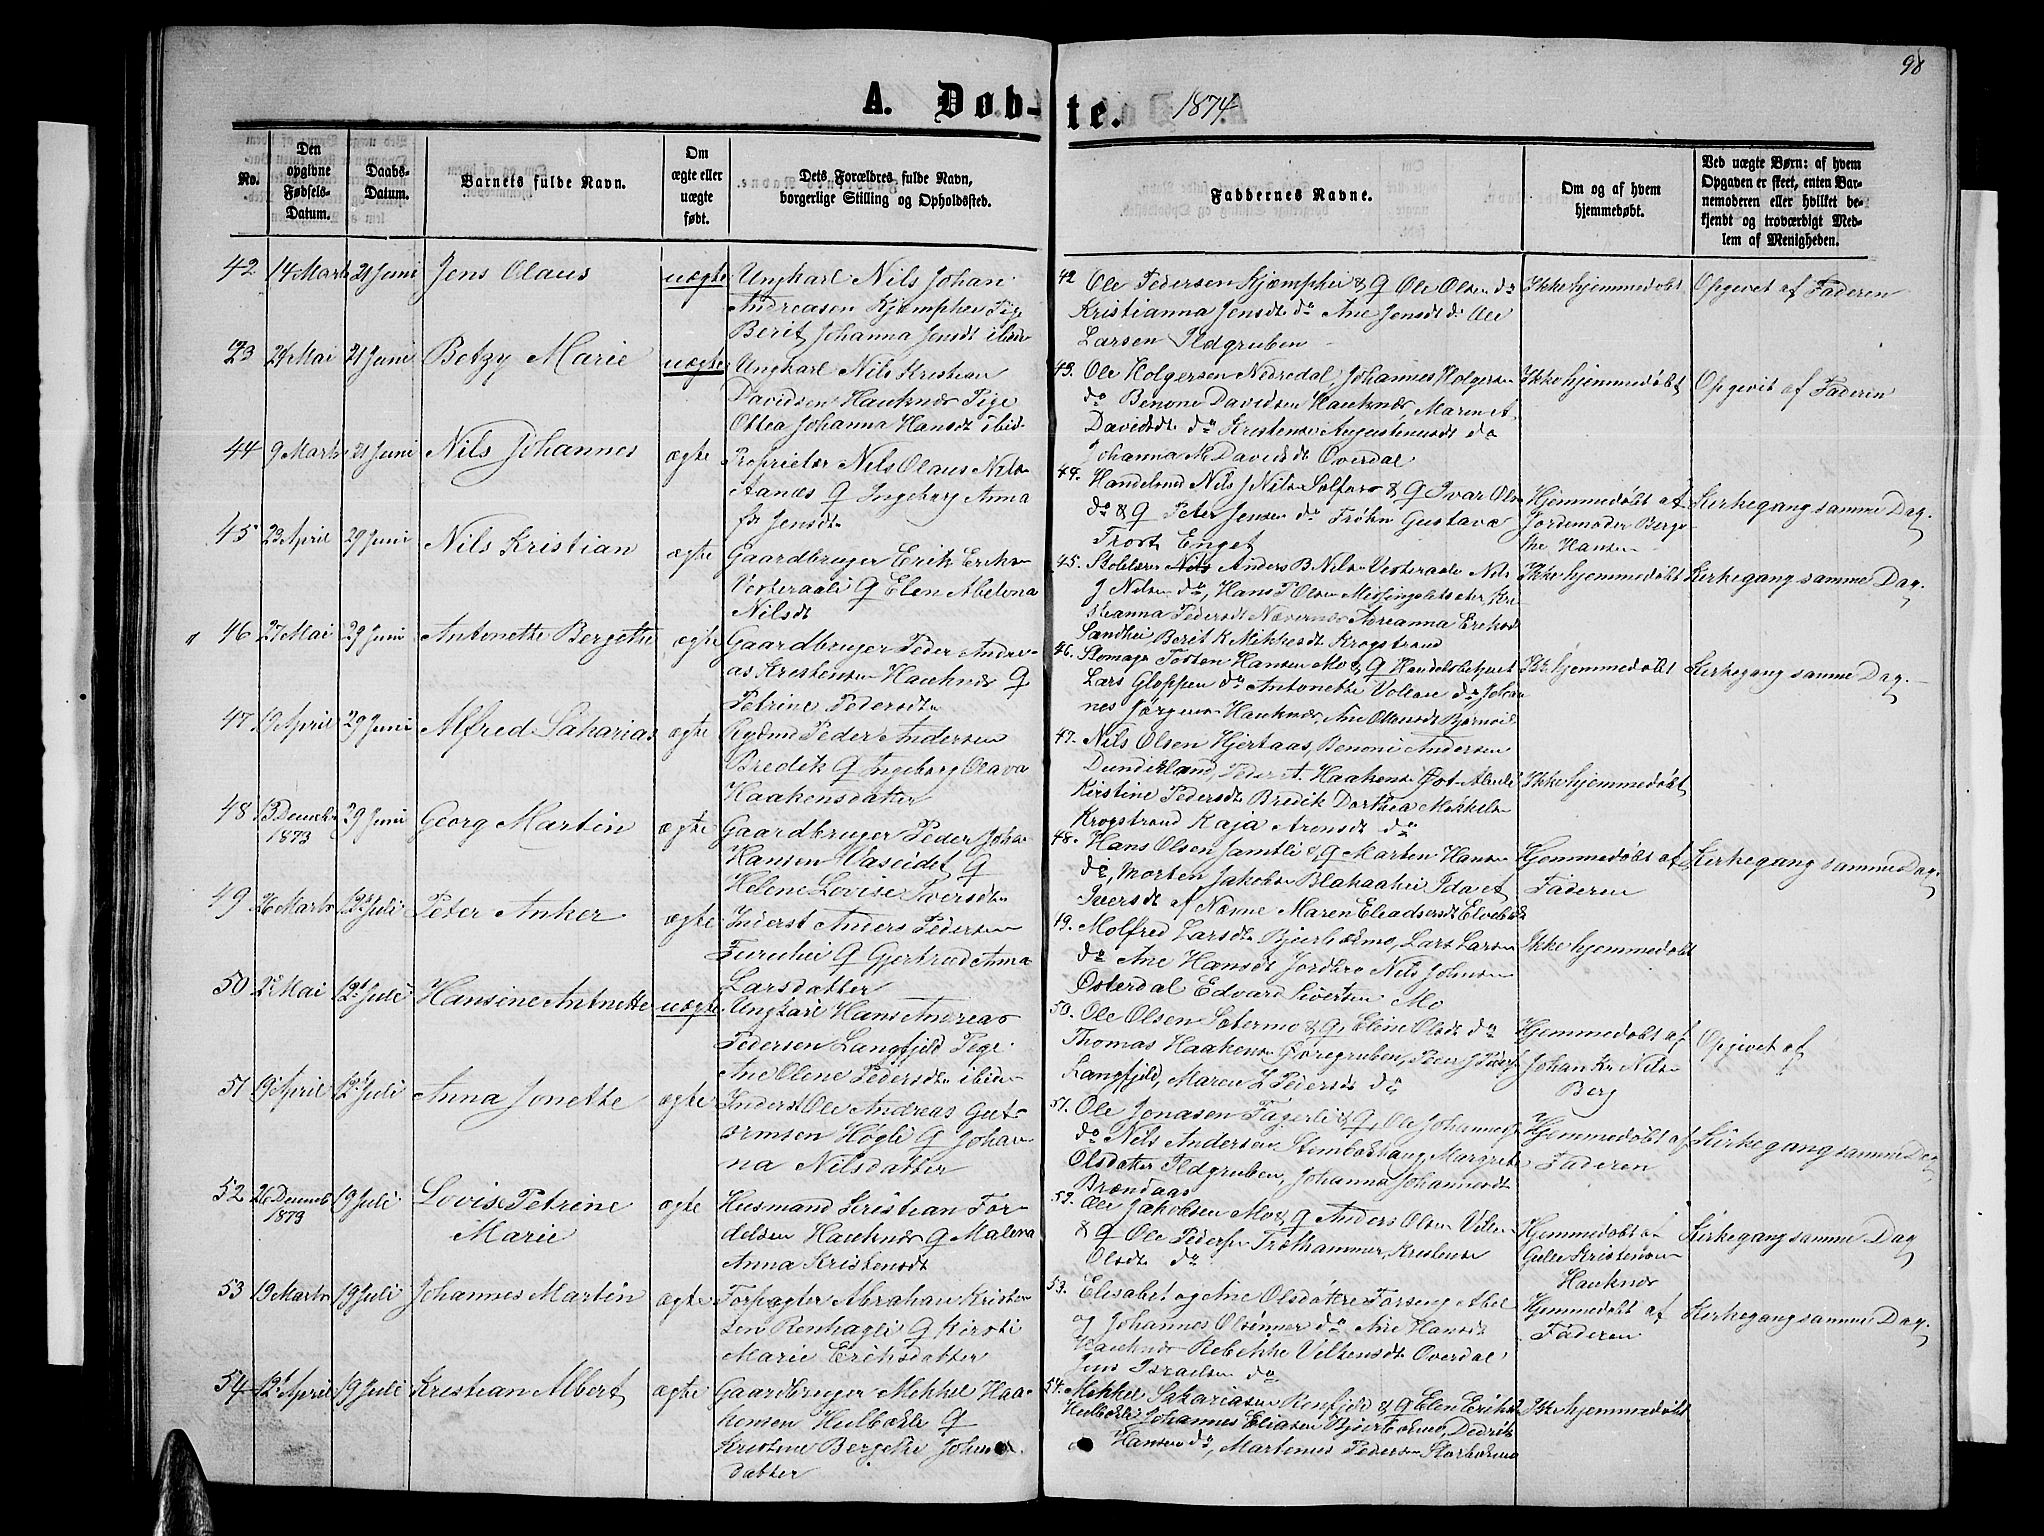 98
A. Døb-te. 1874
No.
Den opgivne Fødsels-Datum.
Daabs-Datum.
Barnets fulde Navn.
Om ægte eller uægte født.
Dets Forældres fulde Navn, borgerlige Stilling og Opholdssted.
Faddernes Navne.
Om og af hvem hjemmedøbt.
Ved uægte Børn: af hvem Opgaven er skeet, enten Barnemoderen eller hvilket bekjendt og troværdigt Medlem af Menigheden.
42 14 Marts 21 Juni Jens Olaus uægte Ungkarl Nils Johan
Andreasen Kjæmphei Pige
Berit Johanna Jensdt ibid
42 Ole Pedersen Kjæmphei & Q Ole Olsen do
Kristianna Jensdt do Ane Jensdt do Ole
Larsen Ildgruben
Ikke hjemmedøbt Opgivet af Faderen
43 24 Mai 21 Juni Betzy Marie uægte Ungkarl Nils Kristian
Davidsen Hauknæs Pige
Ottea Johanna Hansdt ibid
43. Ole Holgersen Nedredal, Johannes Holgersen
do Benoni Davidsen Hauknæs, Maren A
Davidsdt do Kristense Augustinusdt do
Johanna M Davidsdt Overdal
Ikke hjemmedøbt Opgivet af Faderen
44 9 Marts 21 Juni Nils Johannes ægte Proprietær Nils Olaus Nils
Aanæs Q Ingeborg Anna
f. Jensdt
44. Handelsmd Nils J Nilsen Selfors & Q Ivar Olsen
do & Q Peter Jensen do Frøkn Gustava
Frost Enget
Hjemmedøbt af
Jordemoder Berge
the Hansen
Kirkegang samme Dag.
45 23 April 29 Juni Nils Kristian ægte Gaardbruger Erik Eriks
Vesteraali Q Elen Abelona
Nilsdt
45. Skolelærer Anders B. Nilsen Vesteraali Nils
J Nilsen do, Hans P Olsen Messingsletsæter, Kri
stianna Pedersdt Nævernæs Adrianna Eriksdt
Sandhei Berit K Mikkelsdt Krogstrand
Ikke hjemmedøbt Kirkegang samme Dag.
46 27 Mai 29 Juni Antonette Bergethe ægte Gaardbruger Peder Andre
as Kristensen Hauknæs Q
Petrine Pedersdt
46. Skomager Torsten Hansen Mo & Q Handelsbetjent
Lars Gloppen do Antonette Volden do Johan
nes Jørgensen Hauknæs, Ane Olsensdt Bjørnli
Ikke hjemmedøbt Kirkegang samme Dag.
47 19 April 29 Juni Alfred Saharias ægte Rydmd Peder Andersen
Bredek Q Ingeborg Olava
Haakensdatter
47. Nils Olsen Hjertaas, Benoni Andersen
Dunderland, Peder A. Haakens
Kirstine Pedersdt Bredik Dorthea Mikkels
Krogstrand Kaja Arensdt do
Ikke hjemmedøbt
48 13 Decmb 1873 29 Juni Georg Martin ægte Gaardbruger Peder Joha
Hansen Vaseidet Q
Helene Lovise Iversdt
48. Hans Olsen Jamtli & Q Marten Hans
do, Morten Jakobs Blahaahei Ida et
Iversdt af Nænne Maren Eliadsersdt
Hjemmedøbt af
Faderen
Kirkegang samme Dag.
49 26 Marts 12 Juli Peter Anker ægte Inderst Anders Pedersen
Furuhei Q Gjertrud Anna
Larsdatter
49. Molfred Larsdt Bjerbekmo, Lars Larsen
do Ane Hansdt Jordbro Nils Johnsen
Østerdal Edvard Sivertsen Mo
Ikke hjemmedøbt
50 2 Mai 12 Juli Hansine Antnette uægte Ungkarl Hans Andreas
Pedersen Langfjeld Pige
Ane Olene Pedersdt ibid
50. Ole Olsen Sætermo & Q Eline Olsdt do
Thomas Haakens Gorregruben, Peder J Peders
Langfjeld, Maren L Pedersdt do
Hjemmedøbt af
Johan Kr Nils
Berg
Opgivet af
51 19 April 12 Juli Anna Jonette ægte Inderst Ole Andreas Gut
ormsen Høgli Q Johan
na Nilsdatter
51. Ole Jonasen Fagerli & Q, Ole Johannes
do Nils Andersen Stenbækhaug Margrete
Olsdatter Ildgruben, Johanna Johannesdt
Brændaas
Hjemmedøbt af
Faderen
Kirkegang samme Dag
52 26 Decemb 1873 19 Juli Lovise Petrine
Marie
ægte Husmand Kristian For
delsen Hauknæs Q Malena
Anna Kristensdt
52. Ole Jakobsen Mo & Q Anders Olsen
& Q Ole Peders Trolhammer,
Olsdt do
Hjemmedøbt af
Kristensen
Hauknæs
Kirkegang samme Dag
53 13 Marts 19 Juli Johannes Martin ægte Forpagter Abraham Kristen
sen Renhagli Q Kirsti
Marie Eriksdatter
53. Elisabet og Ane Olsdøttre Forseng Abel
og Johannes do Ane Hansdt
Hauknæs Rebekke Viltensdt Overdal
Jens Israelsen do
Hjemmedøbt af
Faderen
Kirkegang samme Dag.
54 12 April 19 Juli Kristian Albert ægte Gaardbruger Mekkel Haa
kensen Hulbækli Q
Kristine Bergethe Johns
datter
54. Mekkel Sakariasen Renfjeld & Q Elen Eriksdt
Hulbækli Johannes Eliasen Bjerbekmo, Dedrik
Hansen do, Martinus Pedersen Storbekmo
Ikke hjemmedøbt